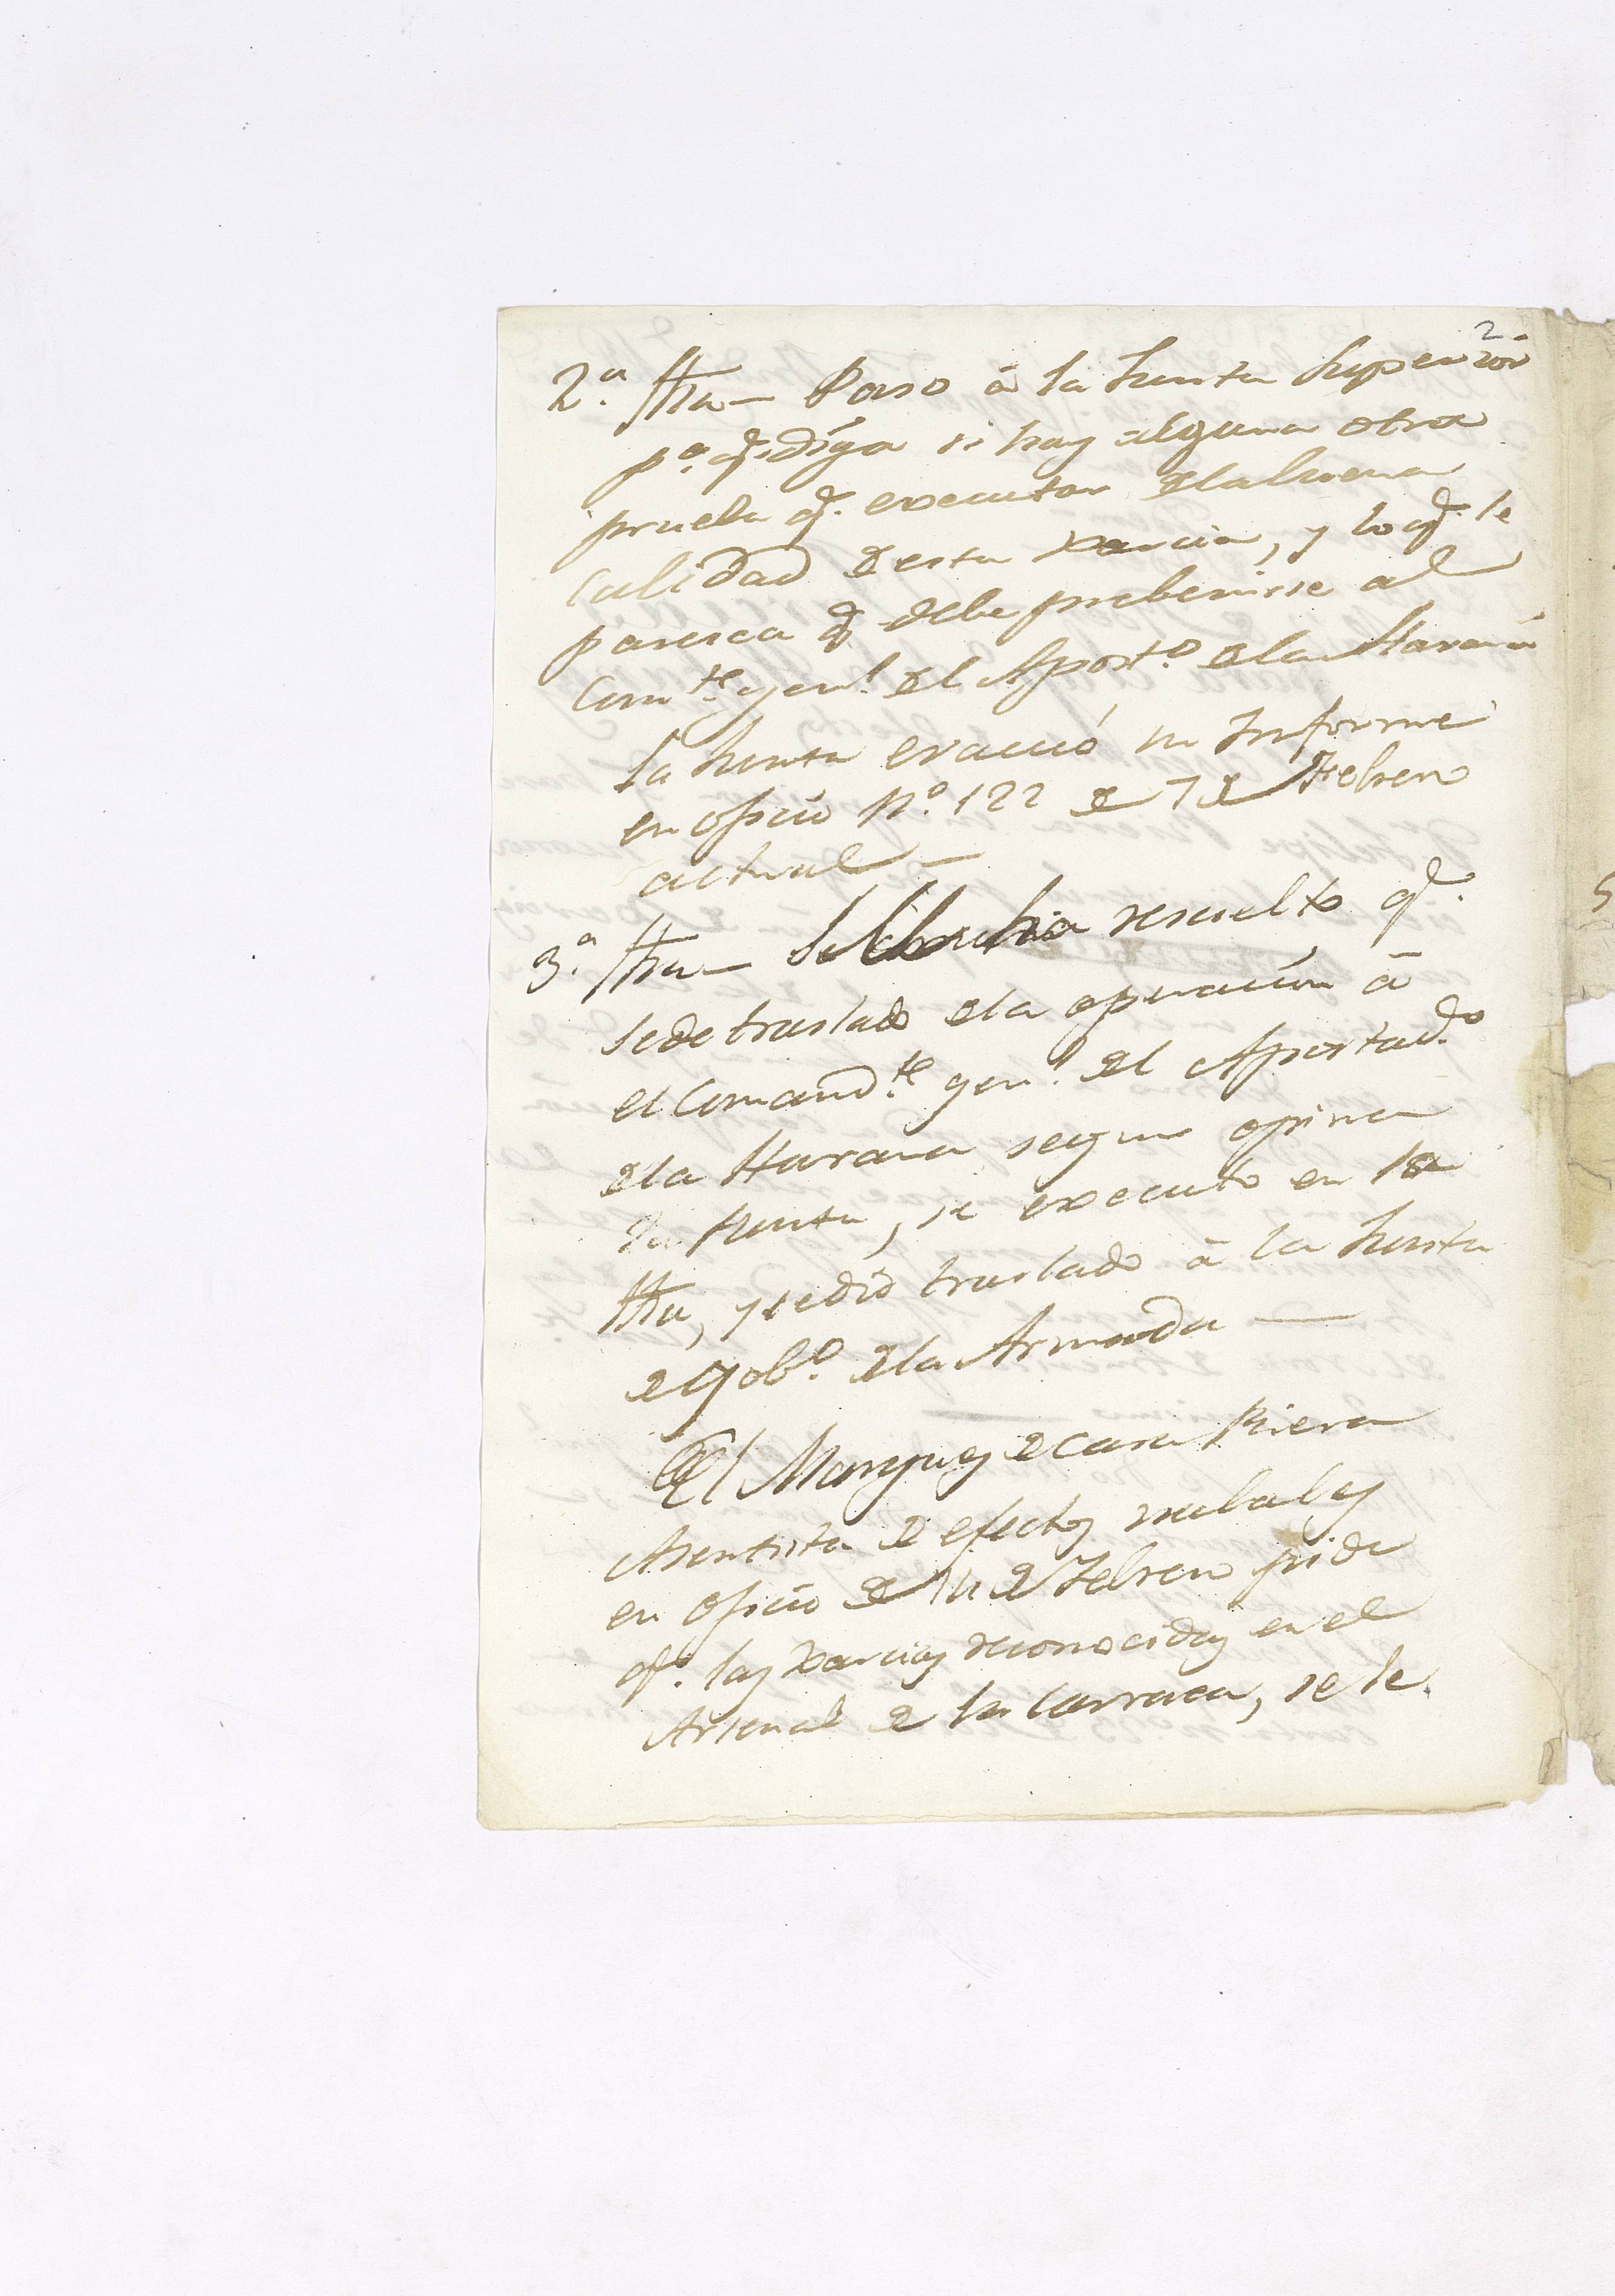 2
2.ª fha — Paso à la Junta Superior
p.ª q.e diga si hay alguna otra
prueba q.e executar de la buena
calidad de esta Xarcia, y lo q.e le
paresca q.e debe prebenirse al
Com.te gen.l del Apost.o de la Havana
la Junta evacuó su Informe
en oficio N.º 122 de 7 de Febrero
actual —
3.ª fha — resuelto q.e
se de traslado de la operacion à
el Comand.te gen.l del Apostad.o
de la Havana segun opina
la Junta, se executo en la
fha, y se dió traslado à la Junta
de Gob.o de la Armada —
El Marques de Casa Riera
Asentista de efectos nabales
en oficio de 11 de Febrero pide
q.e las Xarcias reconocidas en el
Arsenal de la Carraca, se le